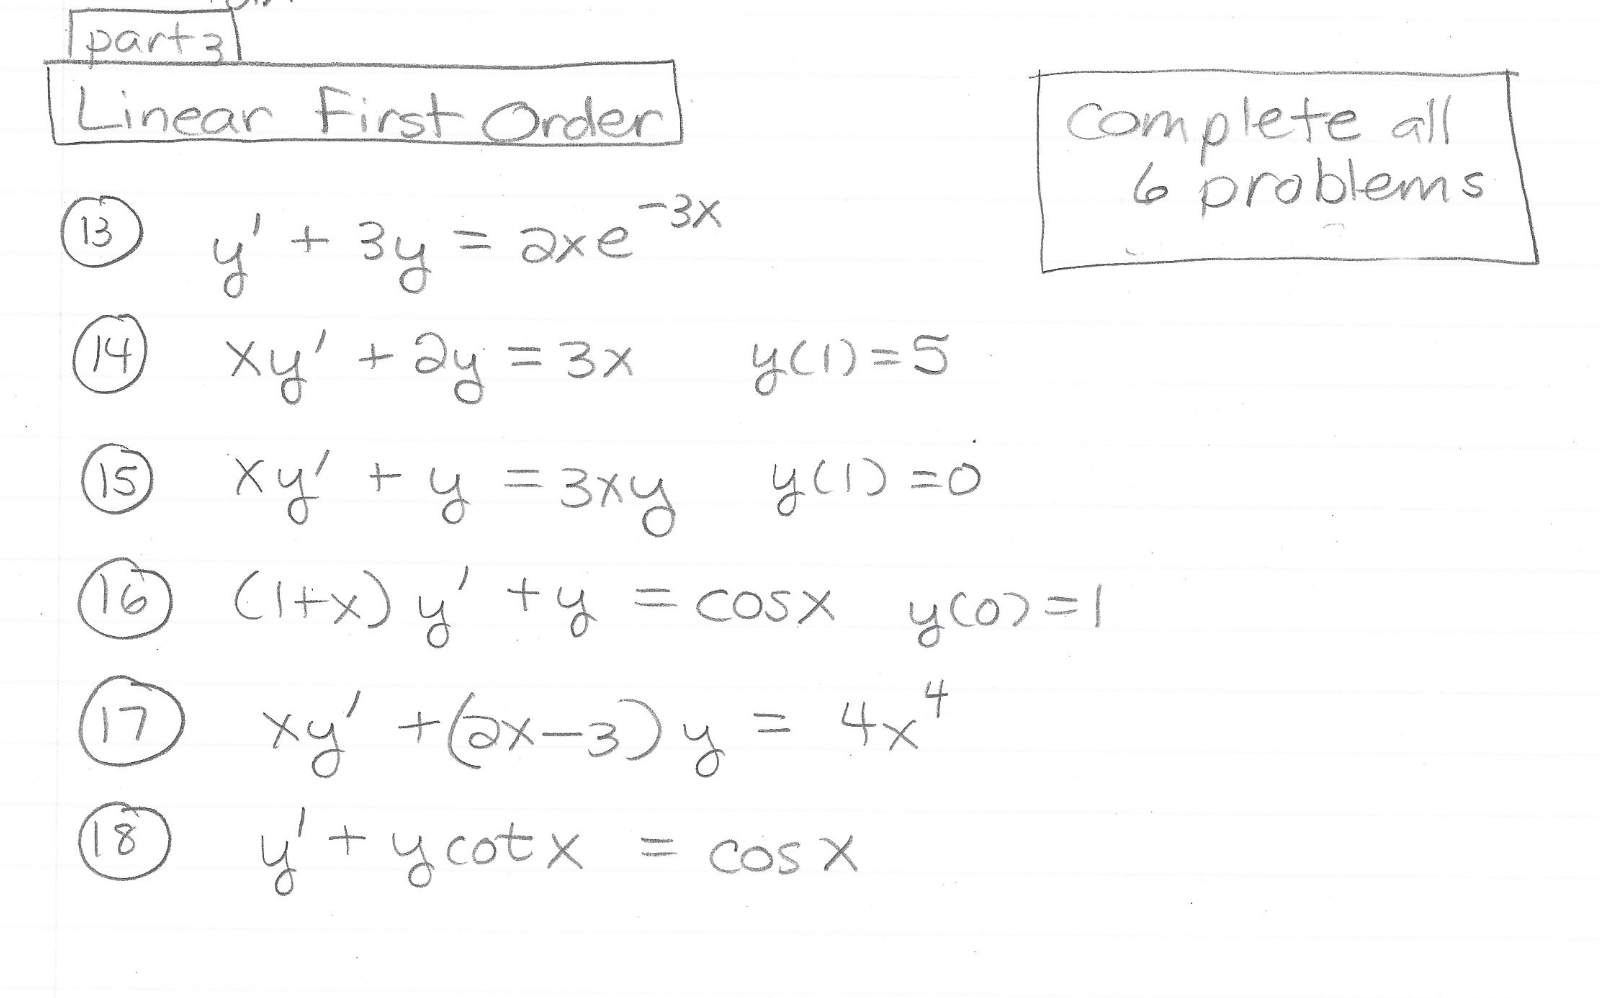 part 3
Linear First Order
Complete all
6 problems
13 y' + 3y = 2xe^-3x
14 xy' + 2y = 3x y(1)=5
15 xy' + y = 3xy y(1)=0
16 (1+x)y' + y = cosx y(0)=1
17 xy' + (2x-3)y = 4x^4
18 y' + y cotx = cosx